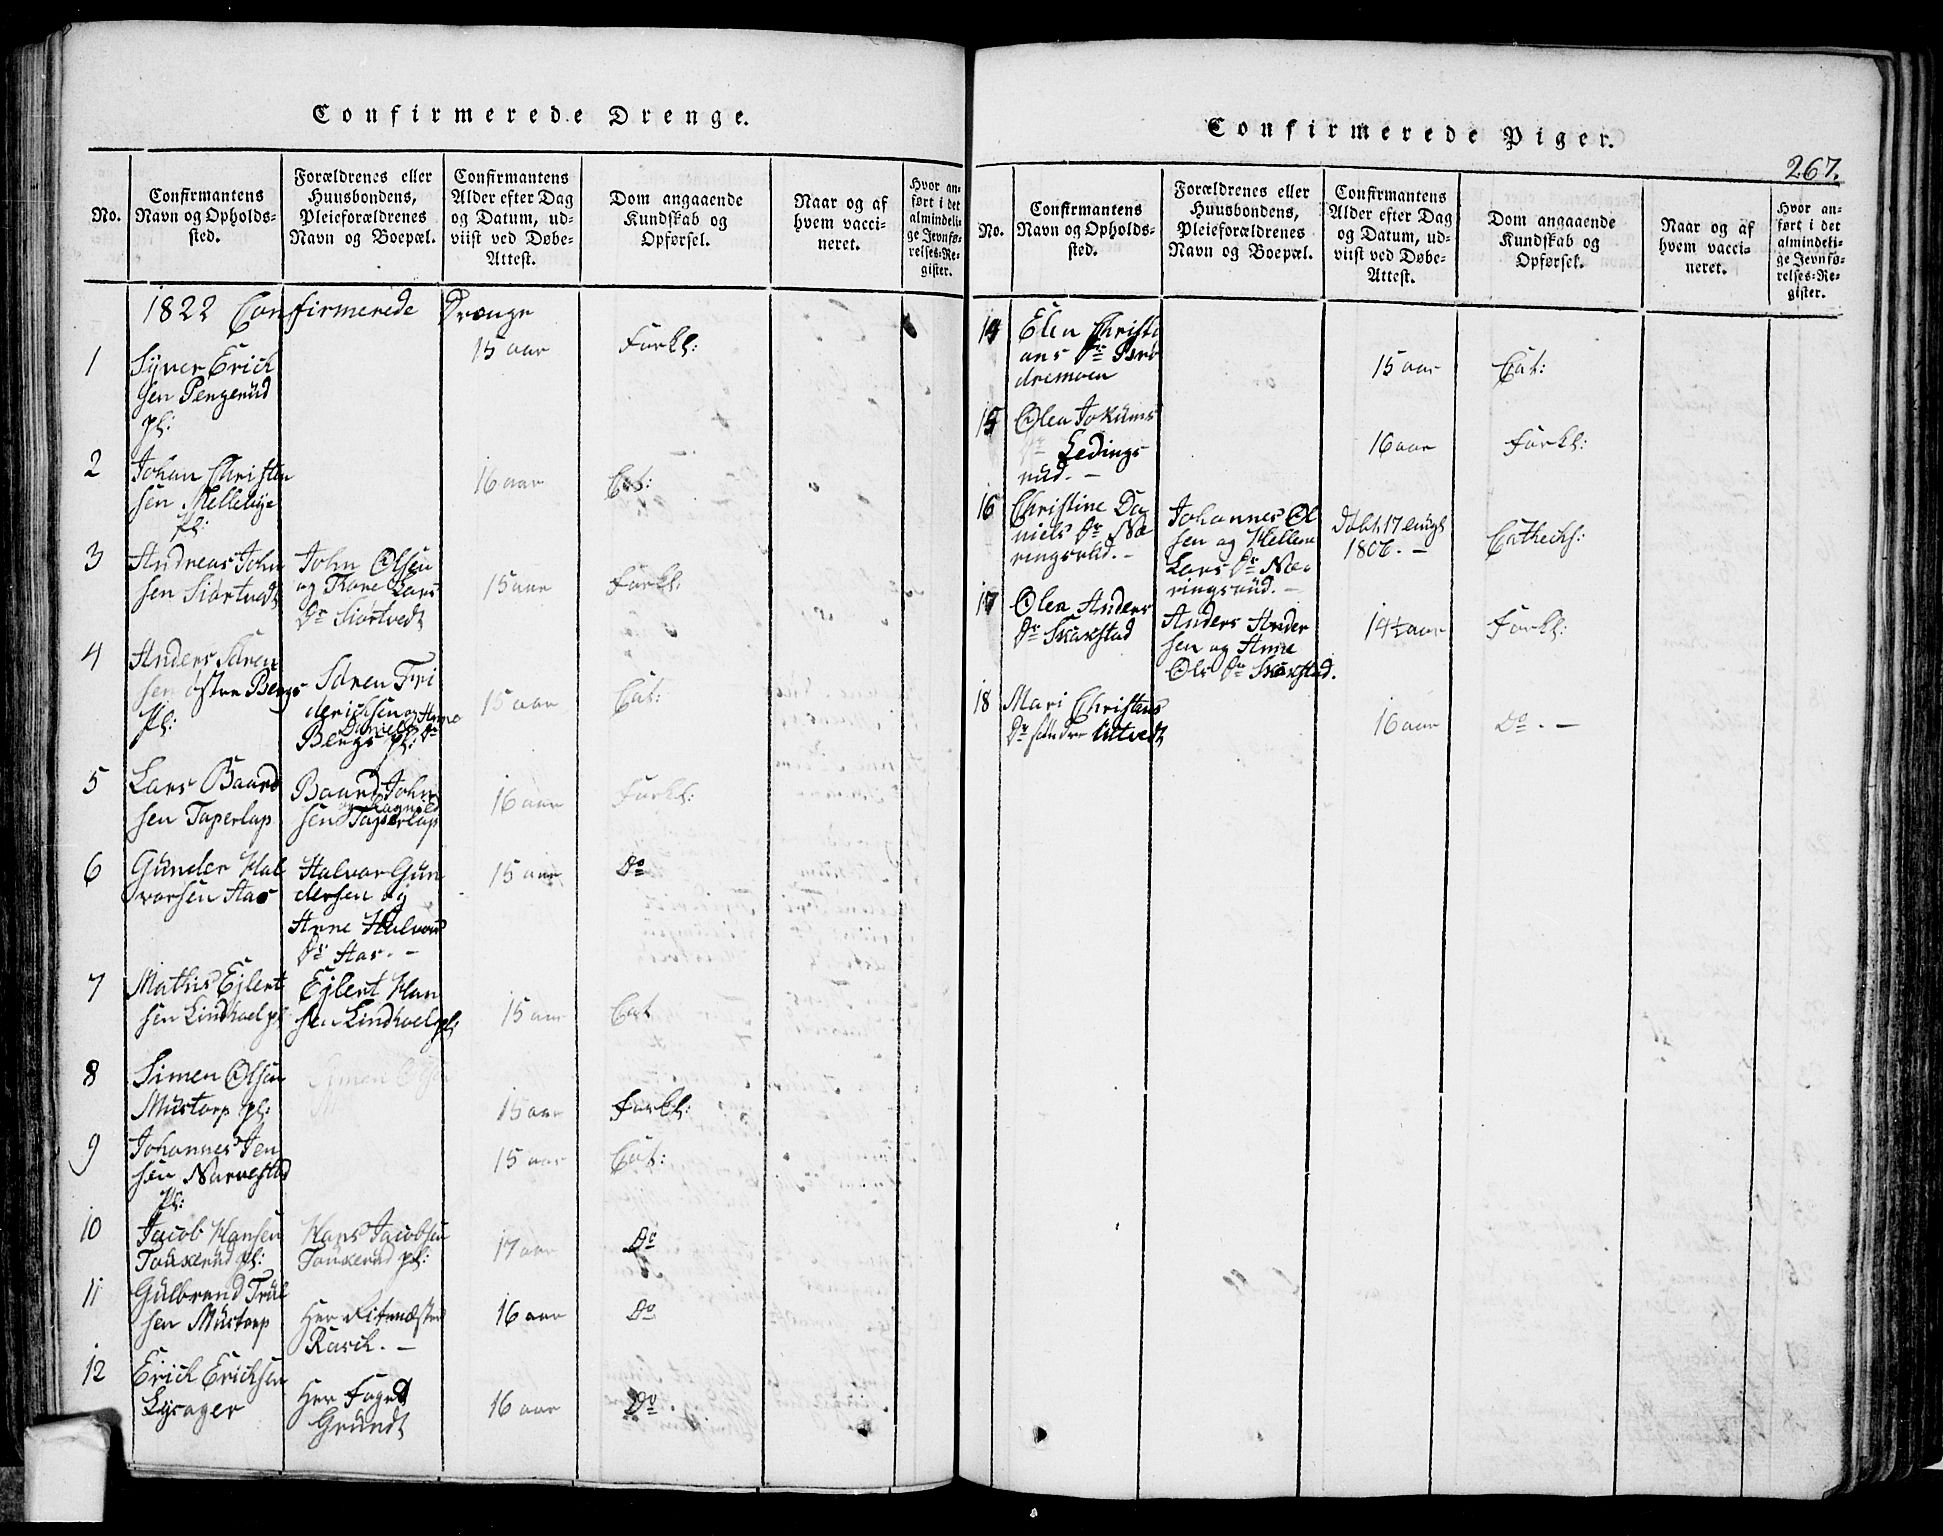 Confirmerede Drenge.
No.
Confirmantens
Navn og Opholds-
sted.
Forældrenes eller
Huusbondens,
Pleieforældrenes
Navn og Boepæl.
Confirmantens
Alder efter Dag
og Datum, ud-
viist ved Døbe-
Attest.
Dom angaaende
Kundskab og
Opførsel.
Naar og af
hvem vacci-
neret.
Hvor an-
ført i det
almindeli-
ge Jevnfø-
relses-Re-
gister.
1822 Confirmerede Drenge
1
Syver Erick
sen Pengerud
pl:
15 aar
Forkl:
2
Johan Christen
sen Mellebye
pl:
16 aar
Cat:
3
Andreas John
sen Siørtvedt
John Olsen
og Thore Lars
Dr Siørtvedt
15 aar
Forkl:
4
Anders Sören
sen østre Bergs
pl:
Sören Fri
derichsen og Anne
Daniels Dr
Bergs pl:
15 aar
Cat:
5
Lars Baard
sen Taperlap
Baard John
og Ragnild
sen Taperlap
16 aar
Forkl:
6
Gunder Hal
vorsen Aas
Halvor Gun
dersen og
Anne Halvord
Dr Aas. -
15 aar
Do
7
Mathis Ejlert
sen Lindhoel pl:
Ejlert Han
sen Lindhoel pl:
15 aar
Cat
8
Simen Olsen
Mustorp pl:
Simen Olsen
15 aar
Forkl:
9
Johannes Jen
sen Narvestad
pl:
15 aar
Cat:
10
Jacob Hansen
Touxerud pl:
Hans Jacobsen
Touxerud pl:
17 aar
Do
11
Gulbrand Trul
sen Mustorp
Her Ritmæster
Rasch. -
16 aar
Do
12
Erick Ericksen
Lysager
Her Foged
Grundt
16 aar
Do.
Confirmerede Piger.
267.
No.
Confirmantens
Navn og Opholds-
sted.
Forældrenes eller
Huusbondens,
Pleieforældrenes
Navn og Boepæl.
Confirmantens
Alder efter Dag
og Datum, ud-
viist ved Døbe-
Attest.
Dom angaaende
Kundskab og
Opførsel.
Naar og af
hvem vacci-
neret.
Hvor an-
ført i det
almindeli-
ge Jevnfø-
relses-Re-
gister.
14
Elen Christi
ans Dr
dremoen
15 aar
Cat:
15
Olea Jokums
Dr Ledings
rud. -
16 aar
Forkl:
16
Christine Da
niels Dr Næ
ringsrud. -
Johannes Ol
sen og Hellene
Lars Dr Næ-
ringsrud. -
Døbt 17 Augt
1806. -
Cathechs:
17
Olea Anders
Dr Skoxstad
Anders Ander
sen og Anne
Ols Dr Skoxstad.
14½ aar
Forkl:
18
Mari Christens
Dr søndre Utvedt
16 aar
Do. -